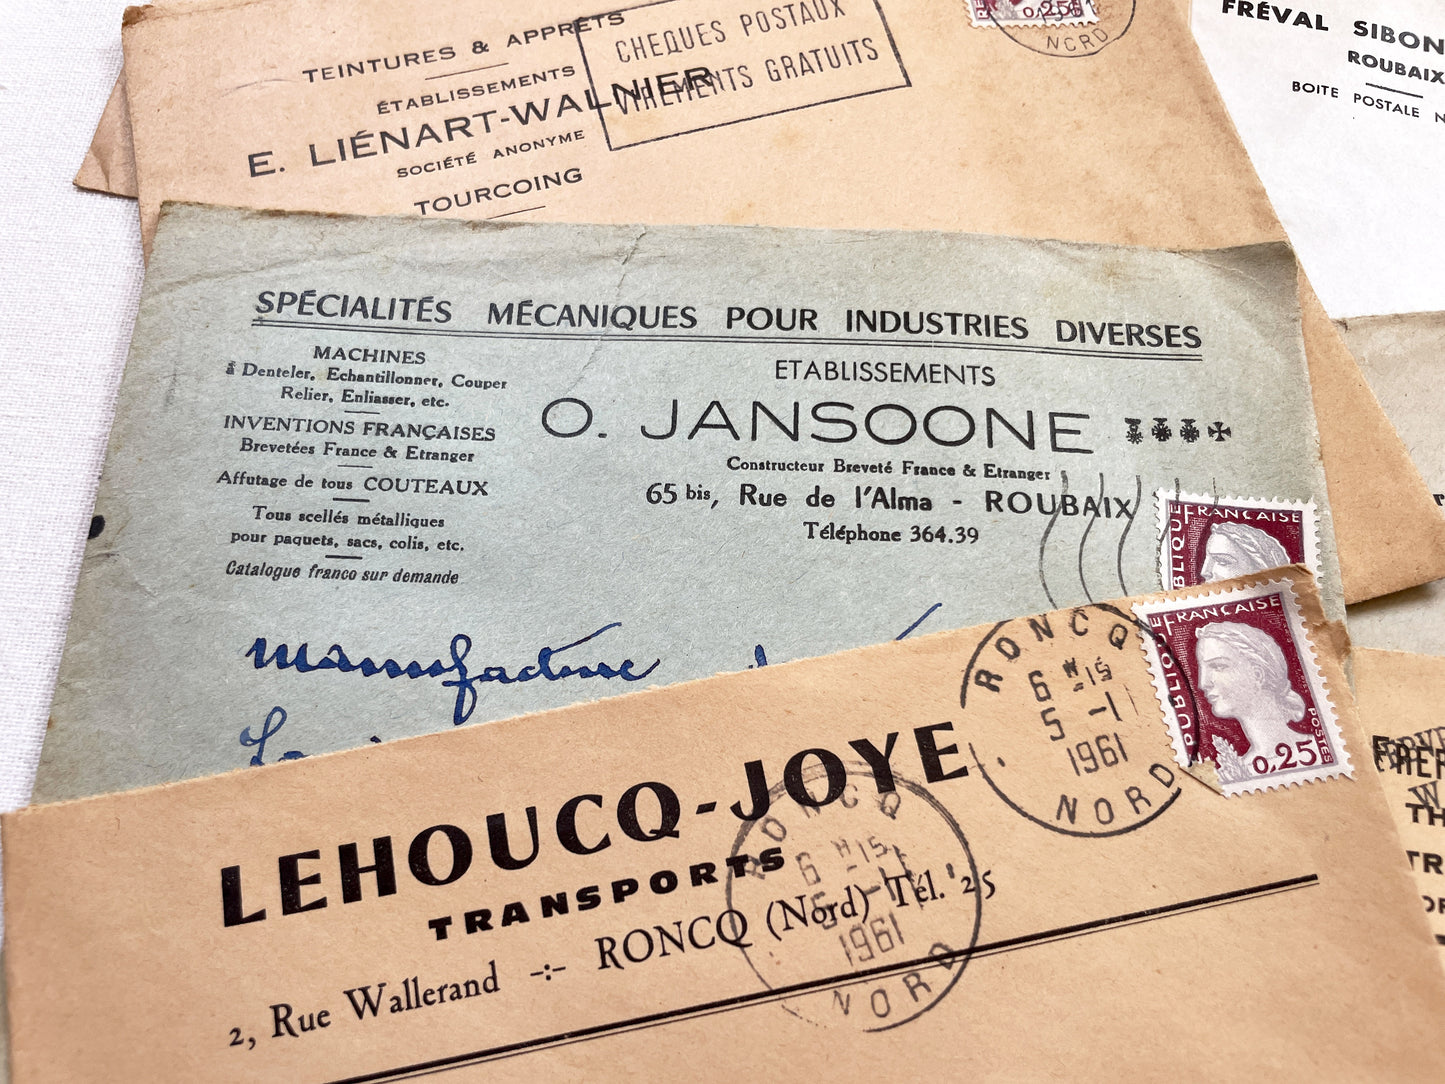 TEINTURES & APPRÊTS
ÉTABLISSEMENTS
E. LIÉNART-WALNIER
SOCIÉTÉ ANONYME
TOURCOING
CHEQUES POSTAUX
VIREMENTS GRATUITS
0,25
NORD
FRÉVAL SIBON
ROUBAIX
BOITE POSTALE N
SPÉCIALITÉS MÉCANIQUES POUR INDUSTRIES DIVERSES
MACHINES
à Denteler, Echantillonner, Couper
Relier, Enliasser, etc.
INVENTIONS FRANÇAISES
Brevetées France & Etranger
Affutage de tous COUTEAUX
Tous scellés métalliques
pour paquets, sacs, colis, etc.
Catalogue franco sur demande
ETABLISSEMENTS
O. JANSOONE
Constructeur Breveté France & Etranger
65 bis, Rue de l'Alma - ROUBAIX
Téléphone 364.39
RÉPUBLIQUE FRANÇAISE
manufacture
RONCQ
6 H -15
5 -1
1961
NORD
RÉPUBLIQUE FRANÇAISE
POSTES
0,25
LEHOUCQ-JOYE
TRANSPORTS
2, Rue Wallerand -:- RONCQ (Nord) Tél. 25
RONCQ
6 H 15
5 -1
1961
NORD